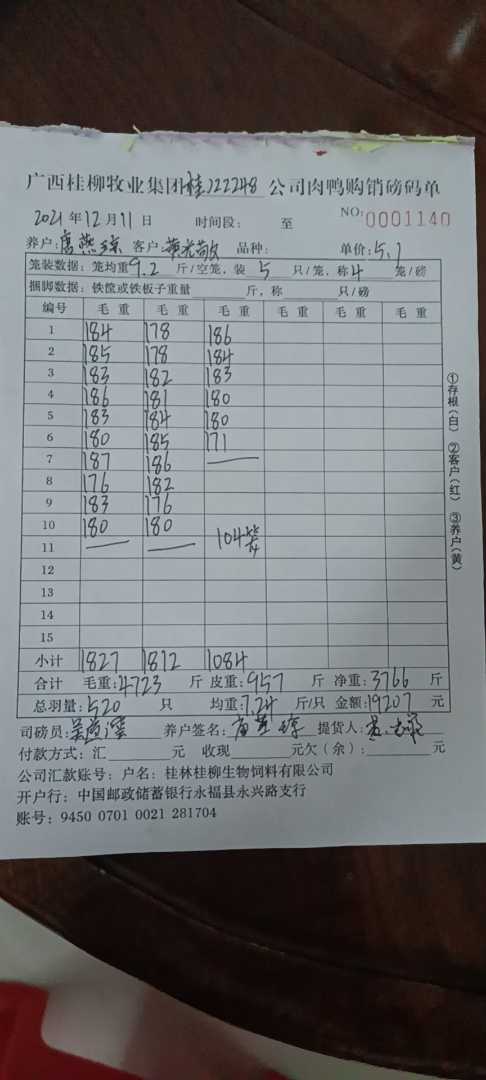 广西桂柳牧业集团桂J22248公司肉鸭购销磅码单
2021年12月11日 时间段： 至 NO:0001140
养户：唐燕琼 客户： 品种： 单价：5.1
笼装数据：笼均重9.2斤/空笼，装5只/笼，称4笼/磅
捆脚数据：铁筐或铁板子重量 斤，称 只/磅
编号 毛重 毛重 毛重 毛重 毛重 毛重
1 184 178 186
2 185 178 184
3 183 182 183
4 186 181 180
5 183 184 180
6 180 185 171
7 187 186 —
8 176 182
9 183 176
10 180 180 104笼
11 — —
12
13
14
15
小计 1827 1812 1084
合计 毛重：4723 斤 皮重：957 斤 净重：3766 斤
总羽量：520 只 均重：7.24 斤/只 金额：19207 元
司磅员： 养户签名：唐燕琼 提货人：
付款方式：汇 元 收现 元欠（余）： 元
公司汇款账号：户名：桂林桂柳生物饲料有限公司
开户行：中国邮政储蓄银行永福县永兴路支行
账号：9450 0701 0021 281704
①存根（白） ②客户（红） ③养户（黄）